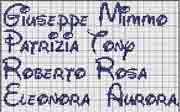 Giuseppe Mimmo
Patrizia Tony
Roberto Rosa
Eleonora Aurora